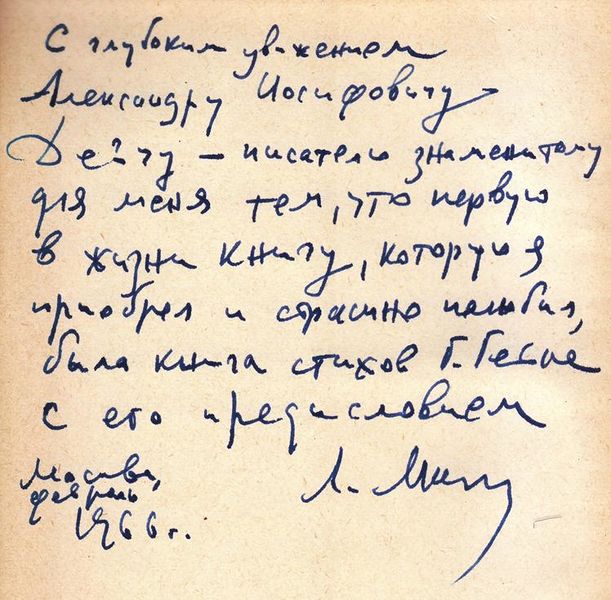 С глубоким уважением
Александру Иосифовичу
Дейчу — писателю знаменитому
для меня тем, что первую
в жизни книгу, которую я
приобрел и страшно полюбил,
была книга стихов Г. Гейне
с его предисловием
Москва,
февраль
1966 г.
Л.